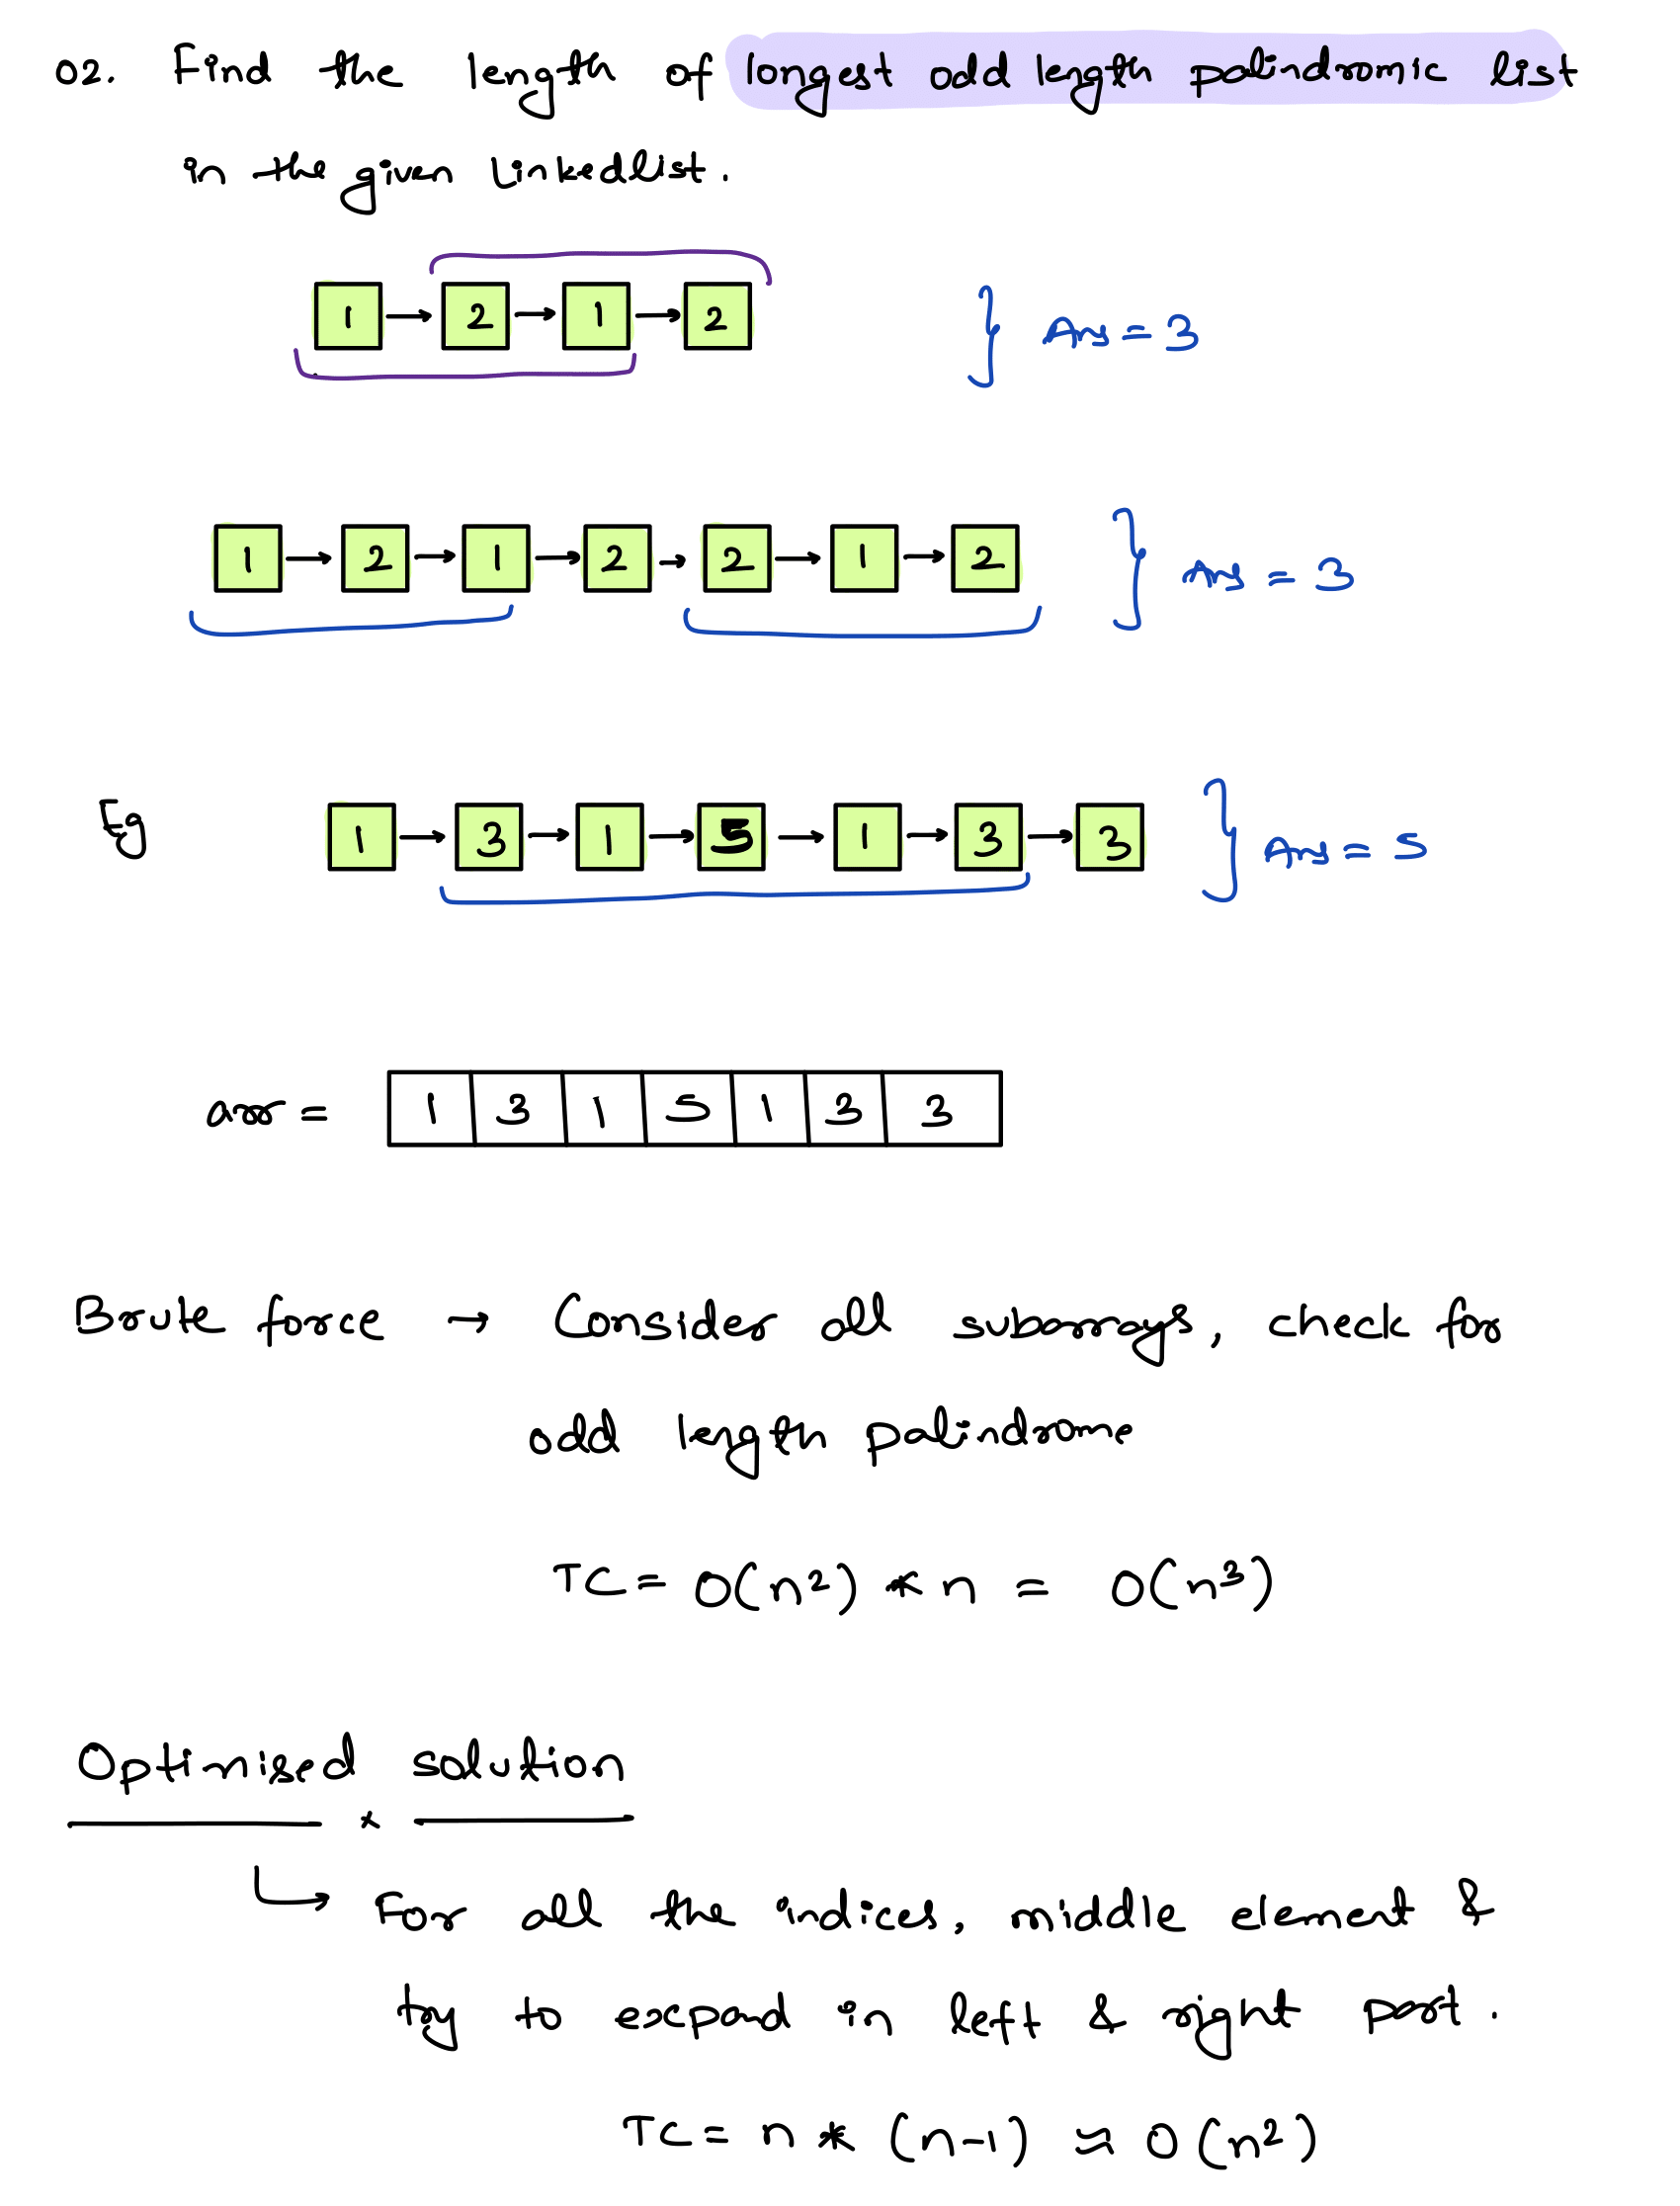 02. Find the length of longest odd length palindromic list
in the given linkedlist.
1 → 2 → 1 → 2 } Ans = 3
1 → 2 → 1 → 2 → 2 → 1 → 2 } Ans = 3
Eg 1 → 3 → 1 → 5 → 1 → 3 → 3 } Ans = 5
arr = 1 3 1 5 1 3 3
Brute force → Consider all subarrays, check for
odd length palindrome
TC = O(n²) * n = O(n³)
Optimised solution
↳ For all the indices, middle element &
try to expand in left & right part.
TC = n * (n-1) ≈ O(n²)